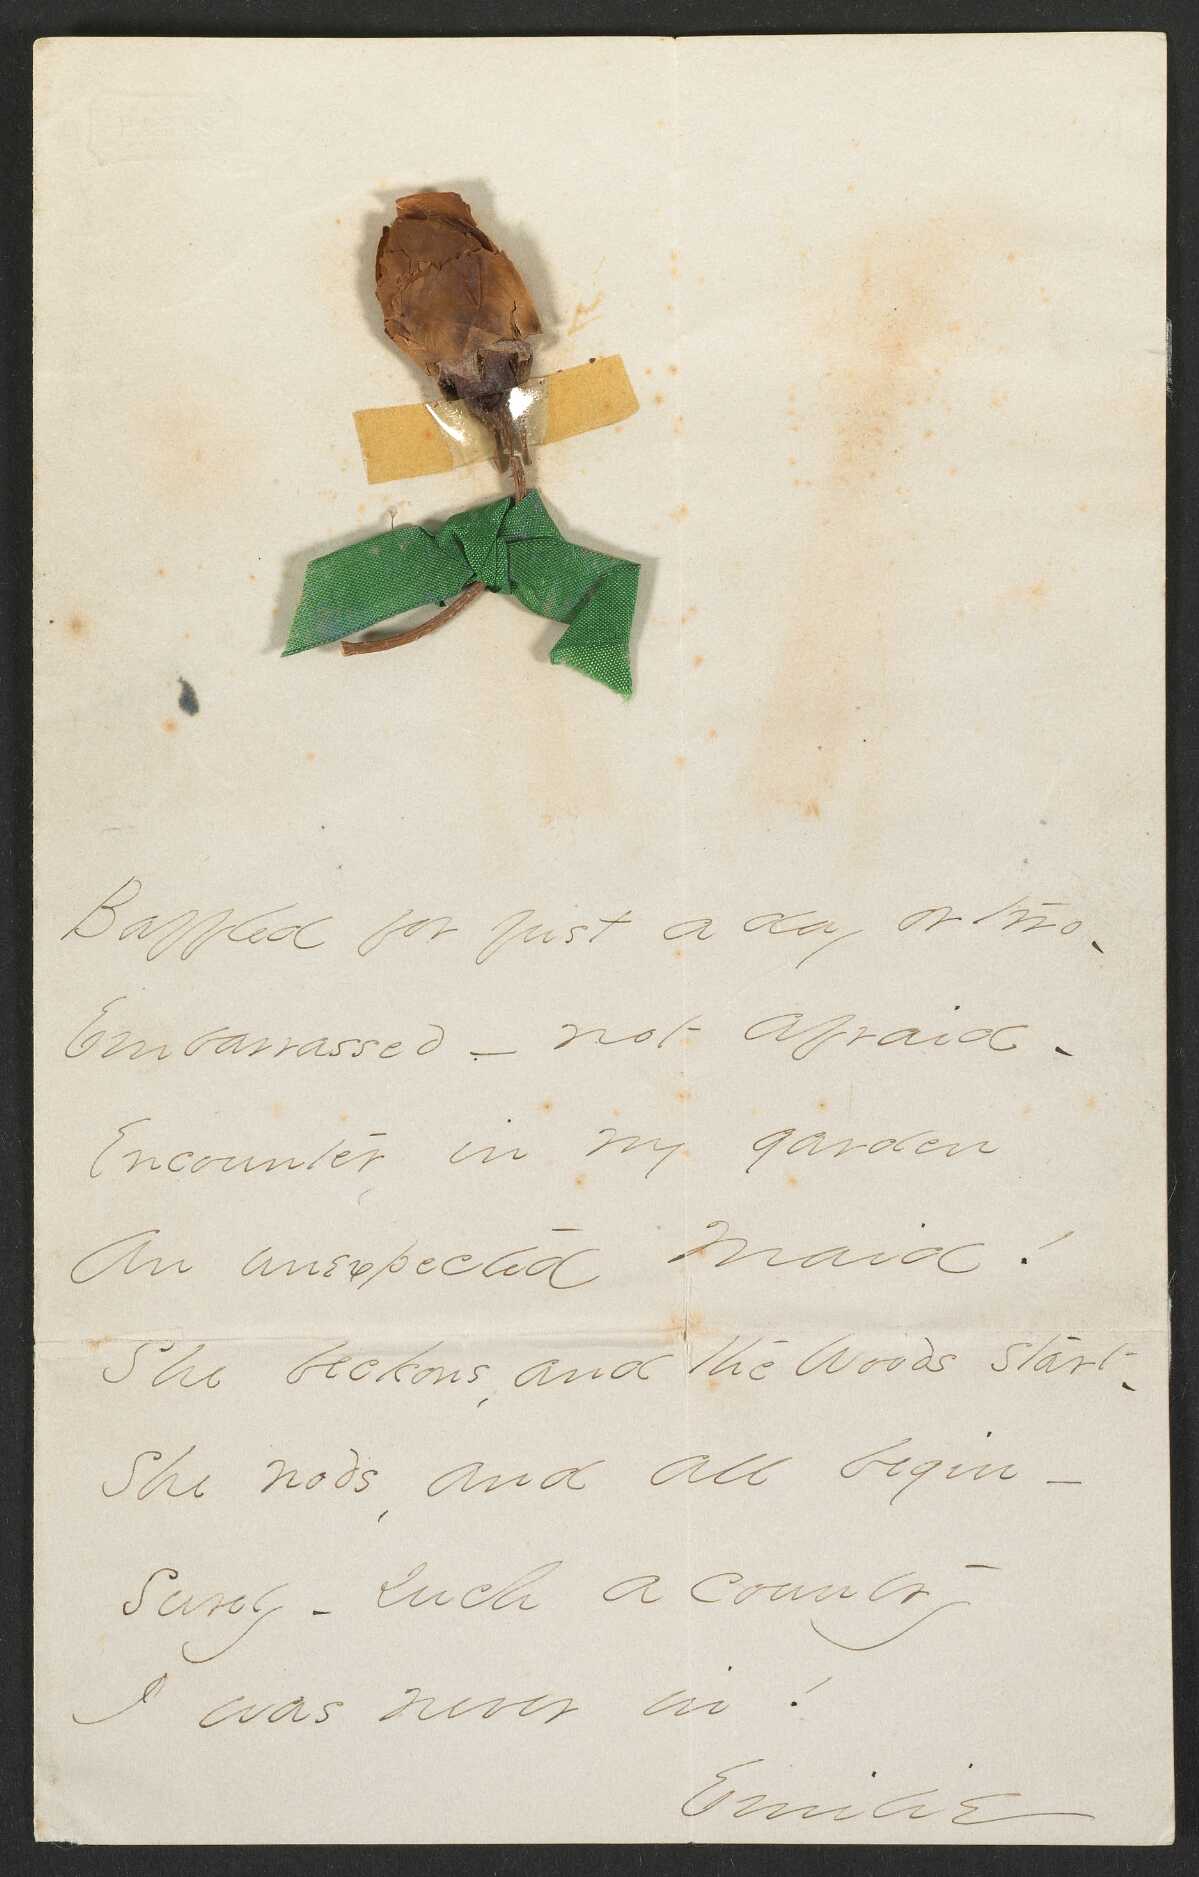 Baffled for just a day or two.
Embarrassed - not afraid -
Encounter in my garden
An unexpected Maid!
She beckons, and the Woods start -
She nods, and all begin -
Surely - such a country
I was never in!
Emilie